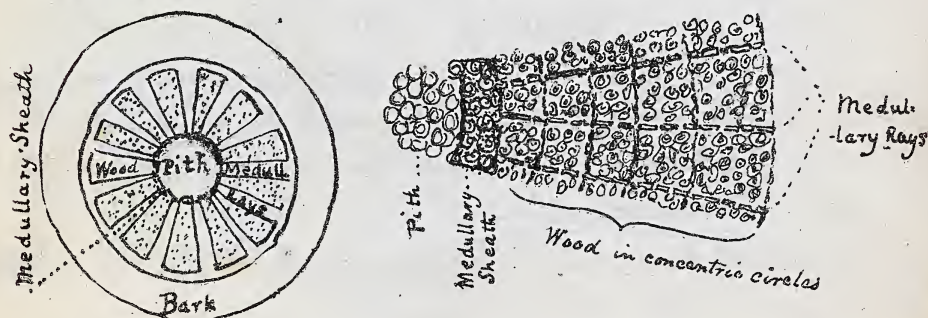 Medullary Sheath
Wood
Pith
Medull.
Rays
Bark
Pith
Medullary
Sheath
Wood in concentric circles
Medul-
-lary Rays